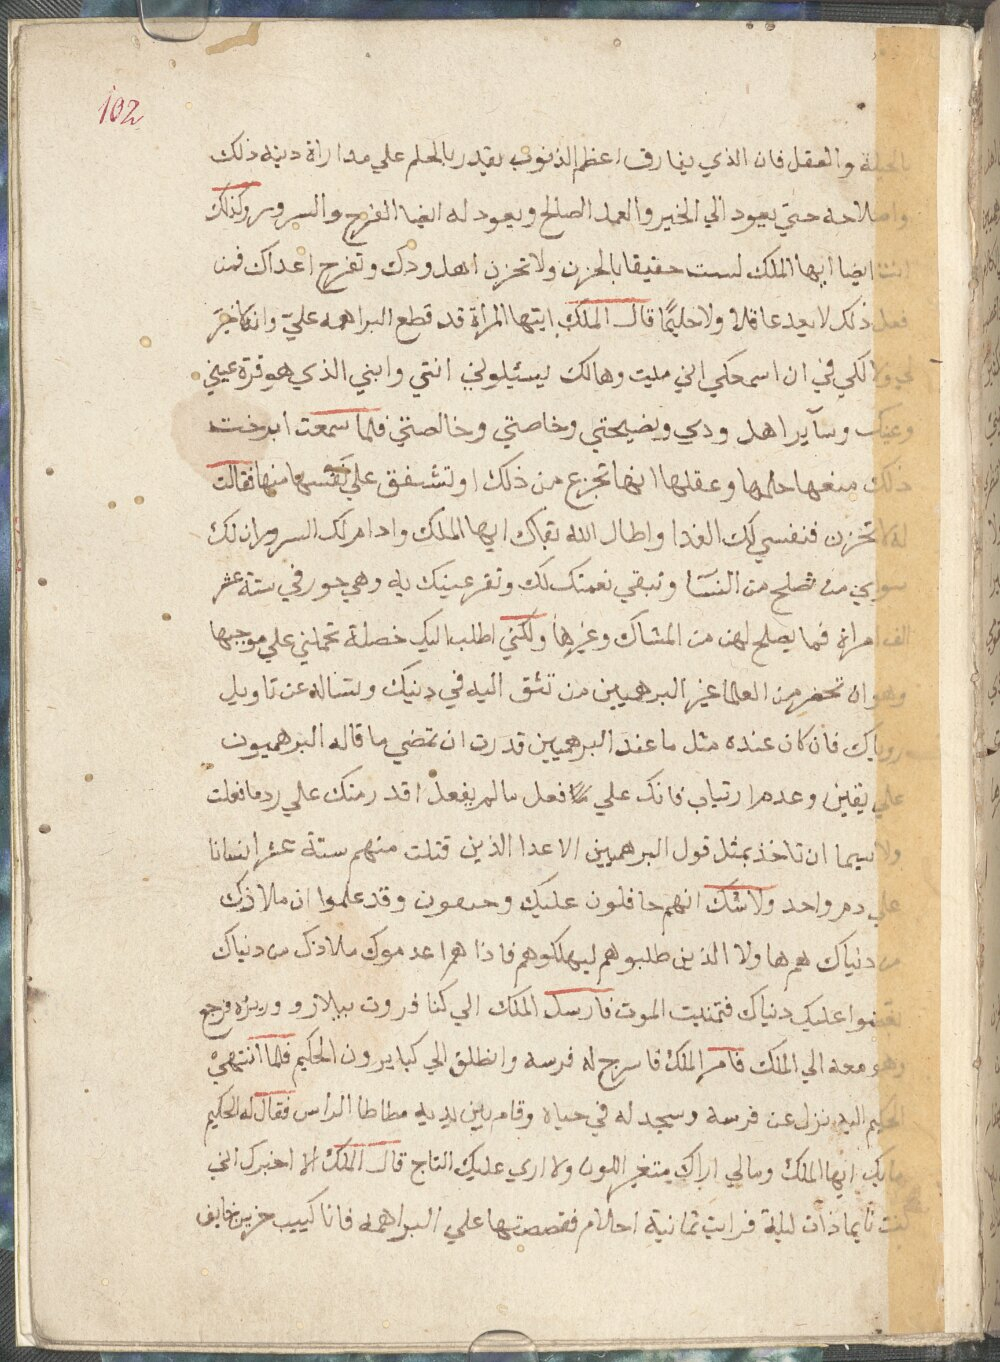 102
بالحيلة والعقل فان الذي يفارق اعظم الذنوب يقدر بالحلم علي مداراة دينه ذلك
واصلاحه حتي يعود الي الخير والعمل الصالح ويعود له ايضا الفرح والسرور وكذلك
انت ايضا ايها الملك لست حقيقا بالحزن ولا تحزن اهل ودك وتفرح اعداك فمن
فعل ذلك لا يعد عاقلا ولا حليمًا قال الملك ايتها المراة قد قطع البراهمه عليّ
لكي في ان اسمحكي اني ميت وهالك يسئلوني انتي وابني الذي هو قرة عيني
وعينك وسآير اهل ودي ونصيحتي وخاصتي وخالصتي فلما سمعت ابرخت
ذلك منعها حلمها وعقلها انها تجزع من ذلك او تشفق علي نفسها منها فقالت
له لا تحزن فنفسي لك الفدا واطال الله بقاك ايها الملك وادام لك السرور ان لك
سوي من تصلح من النسآ وتبقي نعمتك لك وتقر عينيك به وهي حور في ستة عشر
الف امراة فما يصلح لهن من المشاك وغيرها ولكني اطلب اليك خصلة تحملني علي موجبها
وهو ان تحضر من العلما غير البرهميين من تثق اليه في دينك وتساله عن تاويل
روياك فان كان عنده مثل ما عند البرهميين قدرت ان تمضي ما قاله البرهميون
علي يقين وعدم ارتياب فانك علي فعل ما لم يفعل اقدر منك علي رد ما فعلت
ولا سيما ان تاخذ بمثل قول البرهميين الاعدا الذين قتلت منهم ستة عشر انسانا
علي دم واحد ولا شك انهم حاقلون عليك وقد علموا ان ملاذك
من دنياك هم هاولا الذين طلبوهم ليهلكوهم فاذا هم اعدموك ملاذك من دنياك
بغضوا عليك دنياك فتمنيت الموت فارسل الملك الي كنافروت ببلار ووزيره فرجع
وهو معه الي الملك فامر الملك فاسرج له فرسه وانطلق الي كبايرون الحكيم فلما انتهي
الحكيم اليه نزل عن فرسه وسجد له في حياه وقام بين يديه مطاطا الراس فقال له الحكيم
ما بك ايها الملك ومالي اراك متغير اللون ولا اري عليك التاج قال الملك الا اخبرك اني
كنت نايما ذات ليلة فرايت ثمانية احلام فقصصتها علي البراهمه فانا كييب حزين خايف